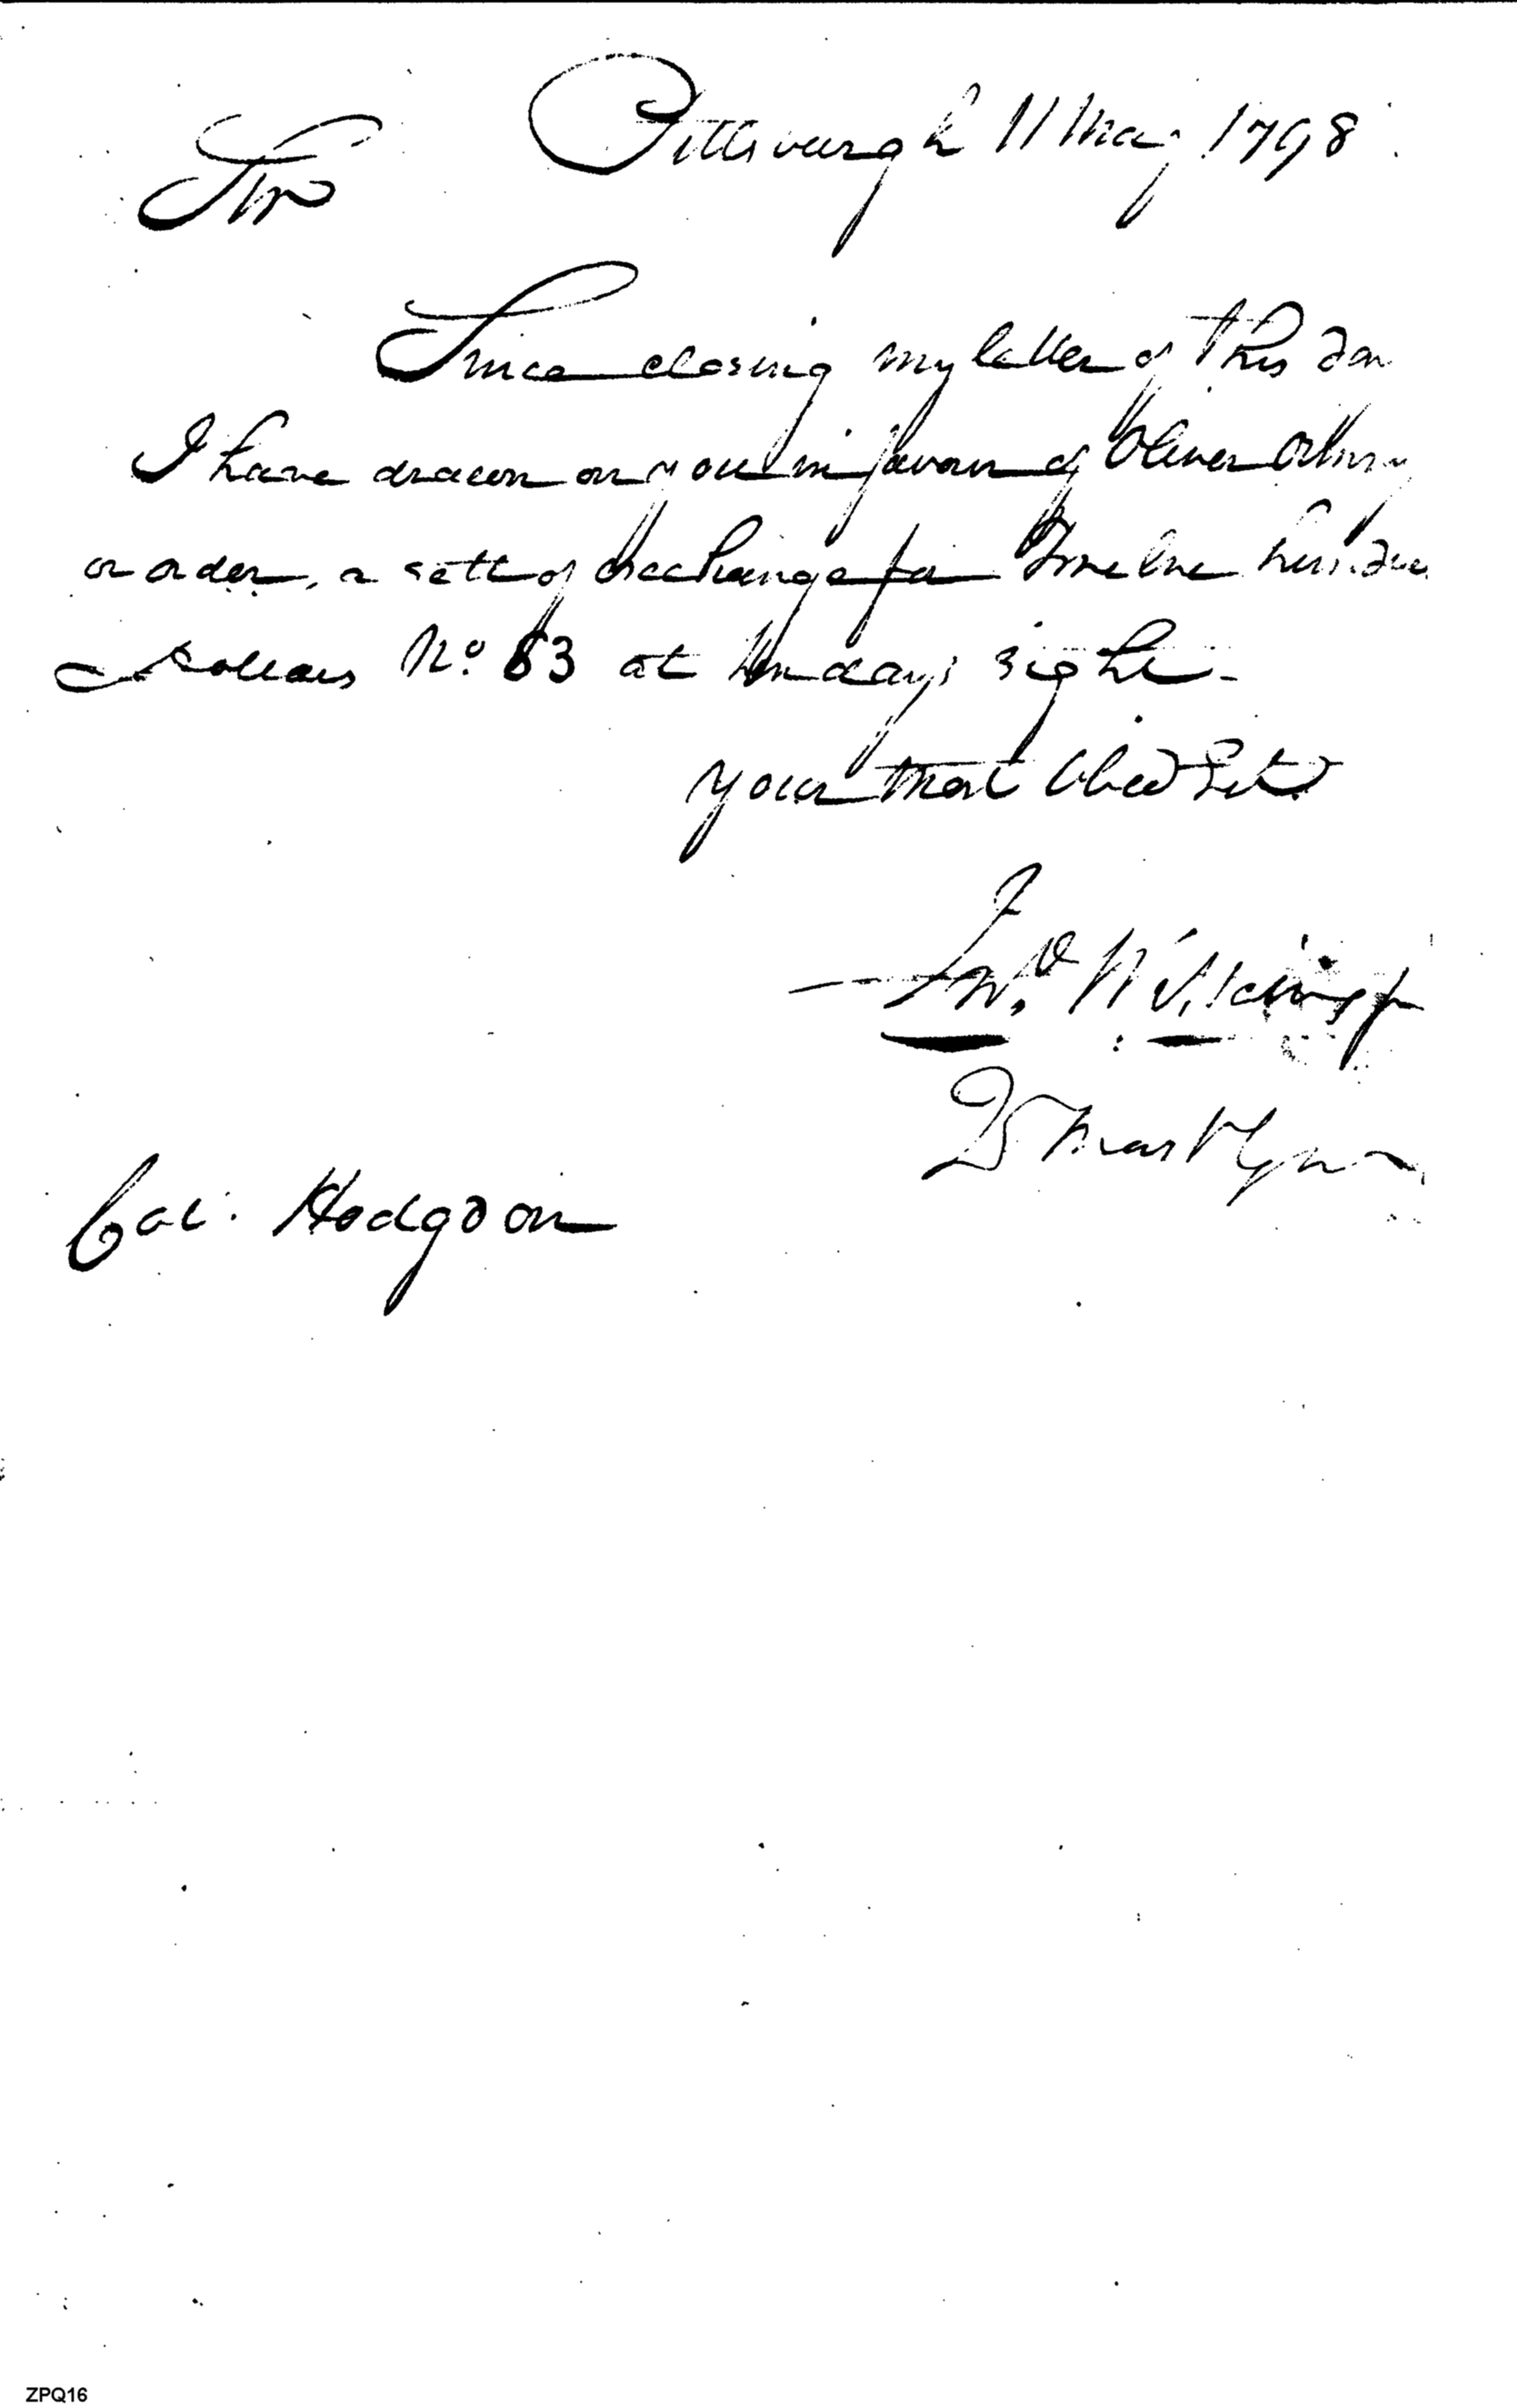 Pittsburgh 11 May 1798.
Sir
Since closing my letter of this day
I have drawn on you in favour of Oliver Ormsby
or order, a sett of exchange for Twelve hundred
Dollars No. 83 at ten days sight -
your most Obed Sert
Jno Wilkins Jr
Col: Hodgdon
ZPQ16